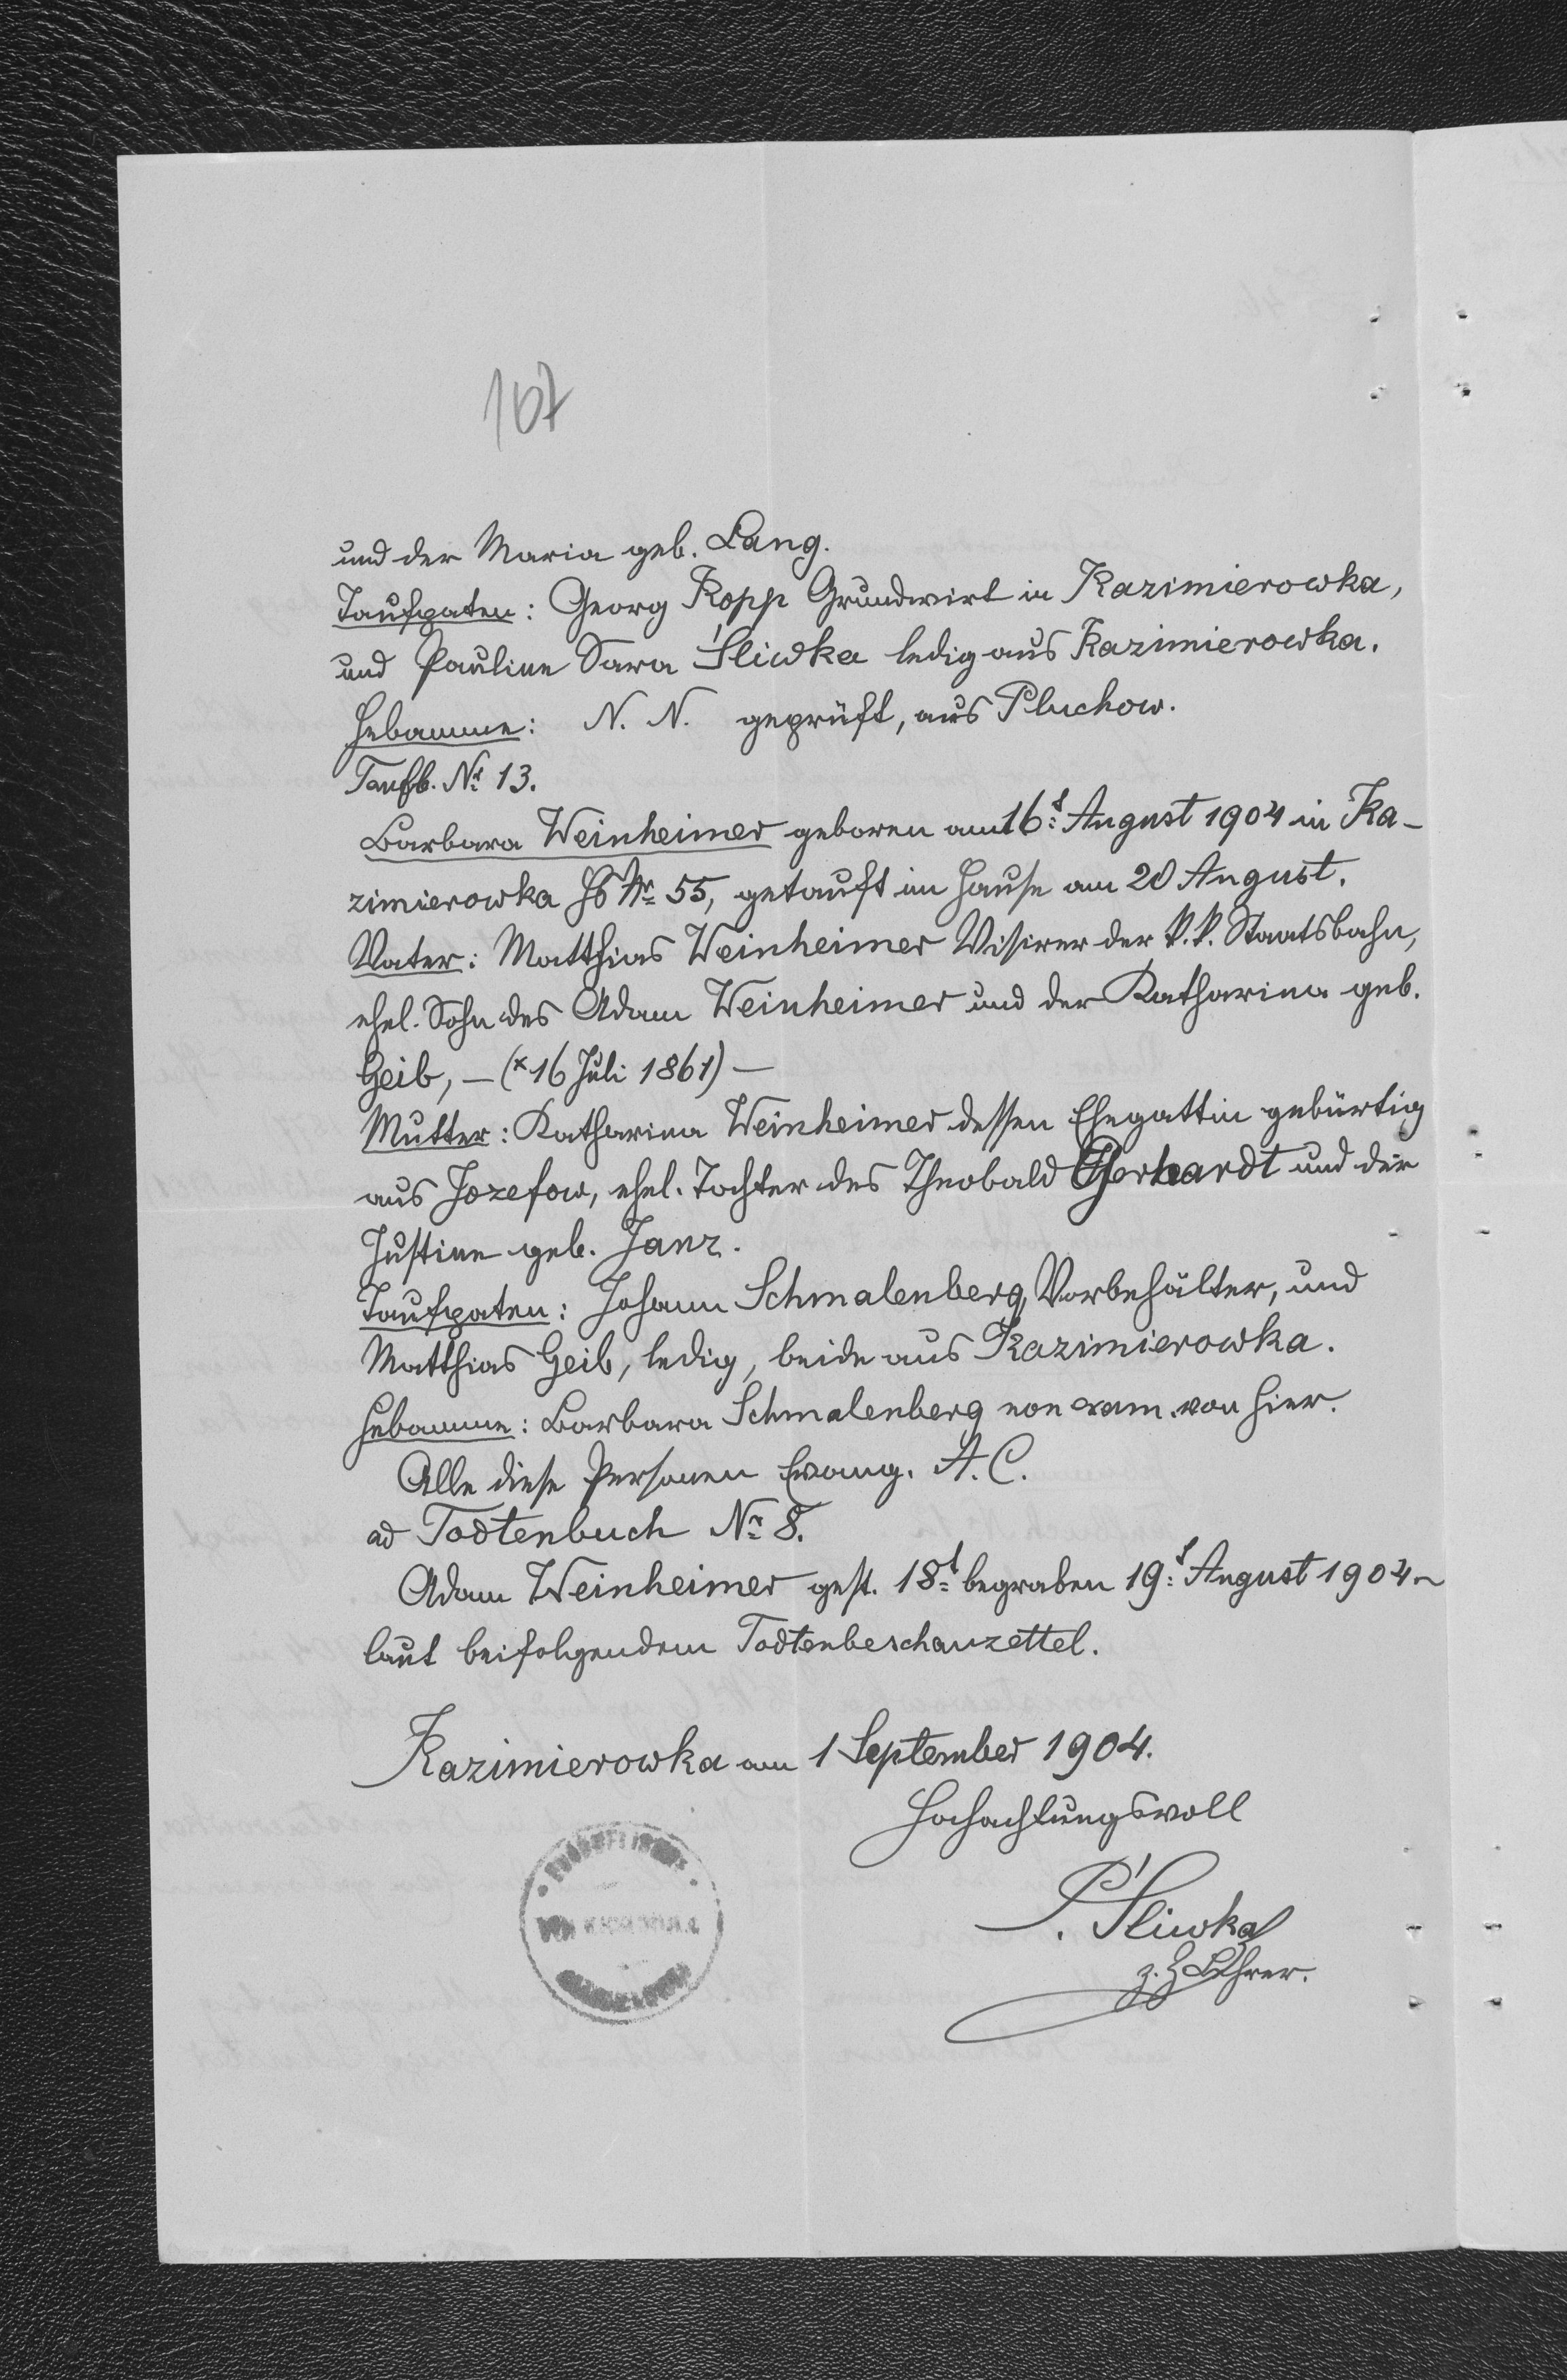 167
und der Maria geb. Lang.
Taufpaten: Georg Kopp Grundwirt in Kazimierowka,
und Pauline Sara Śliwka ledig aus Kazimierowka.
Hebamme: N. N. geprüft, aus Pluchow.
Taufb. Nr 13.
Barbara Weinheimer geboren am 16t August 1904 in Ka-
zimierowka Hs Nr 55, getauft im Hause am 20 August.
Vater: Matthias Weinheimer Visirer der k.k. Staatsbahn,
ehel. Sohn des Adam Weinheimer und der Katharina geb.
Geib, – (* 16 Juli 1861) –
Mutter: Katharina Weinheimer dessen Ehegattin gebürtig
aus Jozefow, ehel. Tochter des Theobald Gerhardt und der
Justine geb. Janz.
Taufpaten: Johann Schmalenberg, Vorbehälter, und
Matthias Geib, ledig, beide aus Kazimierowka.
Hebamme: Barbara Schmalenberg non exam. von hier.
Alle diese Personen Evang. A. C.
ad Todtenbuch Nr 8.
Adam Weinheimer gest. 18t begraben 19t August 1904
laut beifolgendem Todtenbeschauzettel.
Kazimierowka am 1 September 1904.
Hochachtungsvoll
P. Śliwka
z. Z. Lehrer.